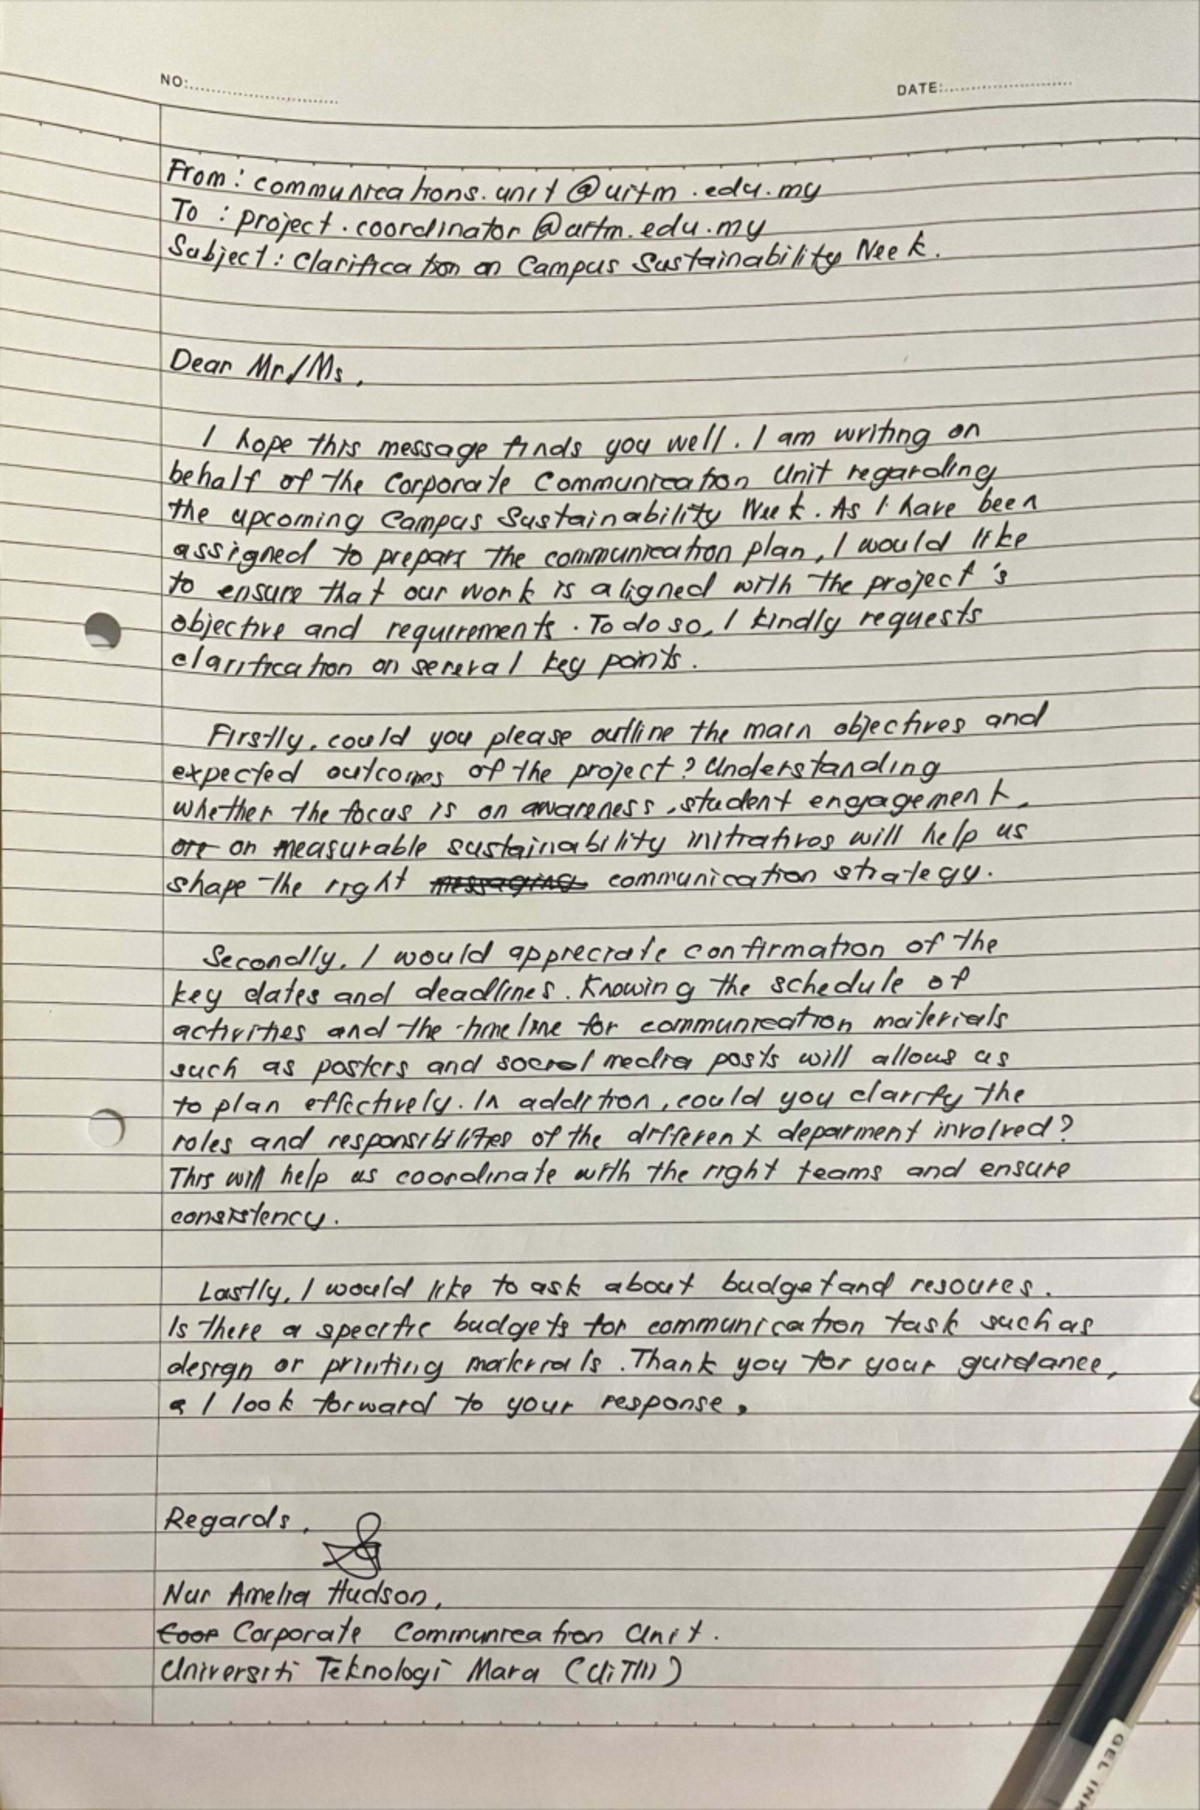 NO:
DATE:
From: communications.unit@uitm.edu.my
To : project.coordinator@uitm.edu.my
Subject: Clarification on Campus Sustainability Week.
Dear Mr/Ms,
I hope this message finds you well. I am writing on
behalf of the Corporate Communication Unit regarding
the upcoming Campus Sustainability Week. As I have been
assigned to prepare the communication plan, I would like
to ensure that our work is aligned with the project's
objective and requirements. To do so, I kindly requests
clarification on several key points.
Firstly, could you please outline the main objectives and
expected outcomes of the project? Understanding
whether the focus is on awareness, student engagement,
or measurable sustainability initiatives will help us
shape the right communication strategy.
Secondly, I would appreciate confirmation of the
key dates and deadlines. Knowing the schedule of
activities and the timeline for communication materials
such as posters and social media posts will allow us
to plan effectively. In addition, could you clarify the
roles and responsibilities of the different deparment involved?
This will help us coordinate with the right teams and ensure
consistency.
Lastly, I would like to ask about budget and resoures.
Is there a specific budgets for communication task such as
design or printing materials. Thank you for your guidance,
I look forward to your response.
Regards,
Nur Amelia Hudson,
Corporate Communication Unit.
Universiti Teknologi Mara (UiTM)
GEL INK